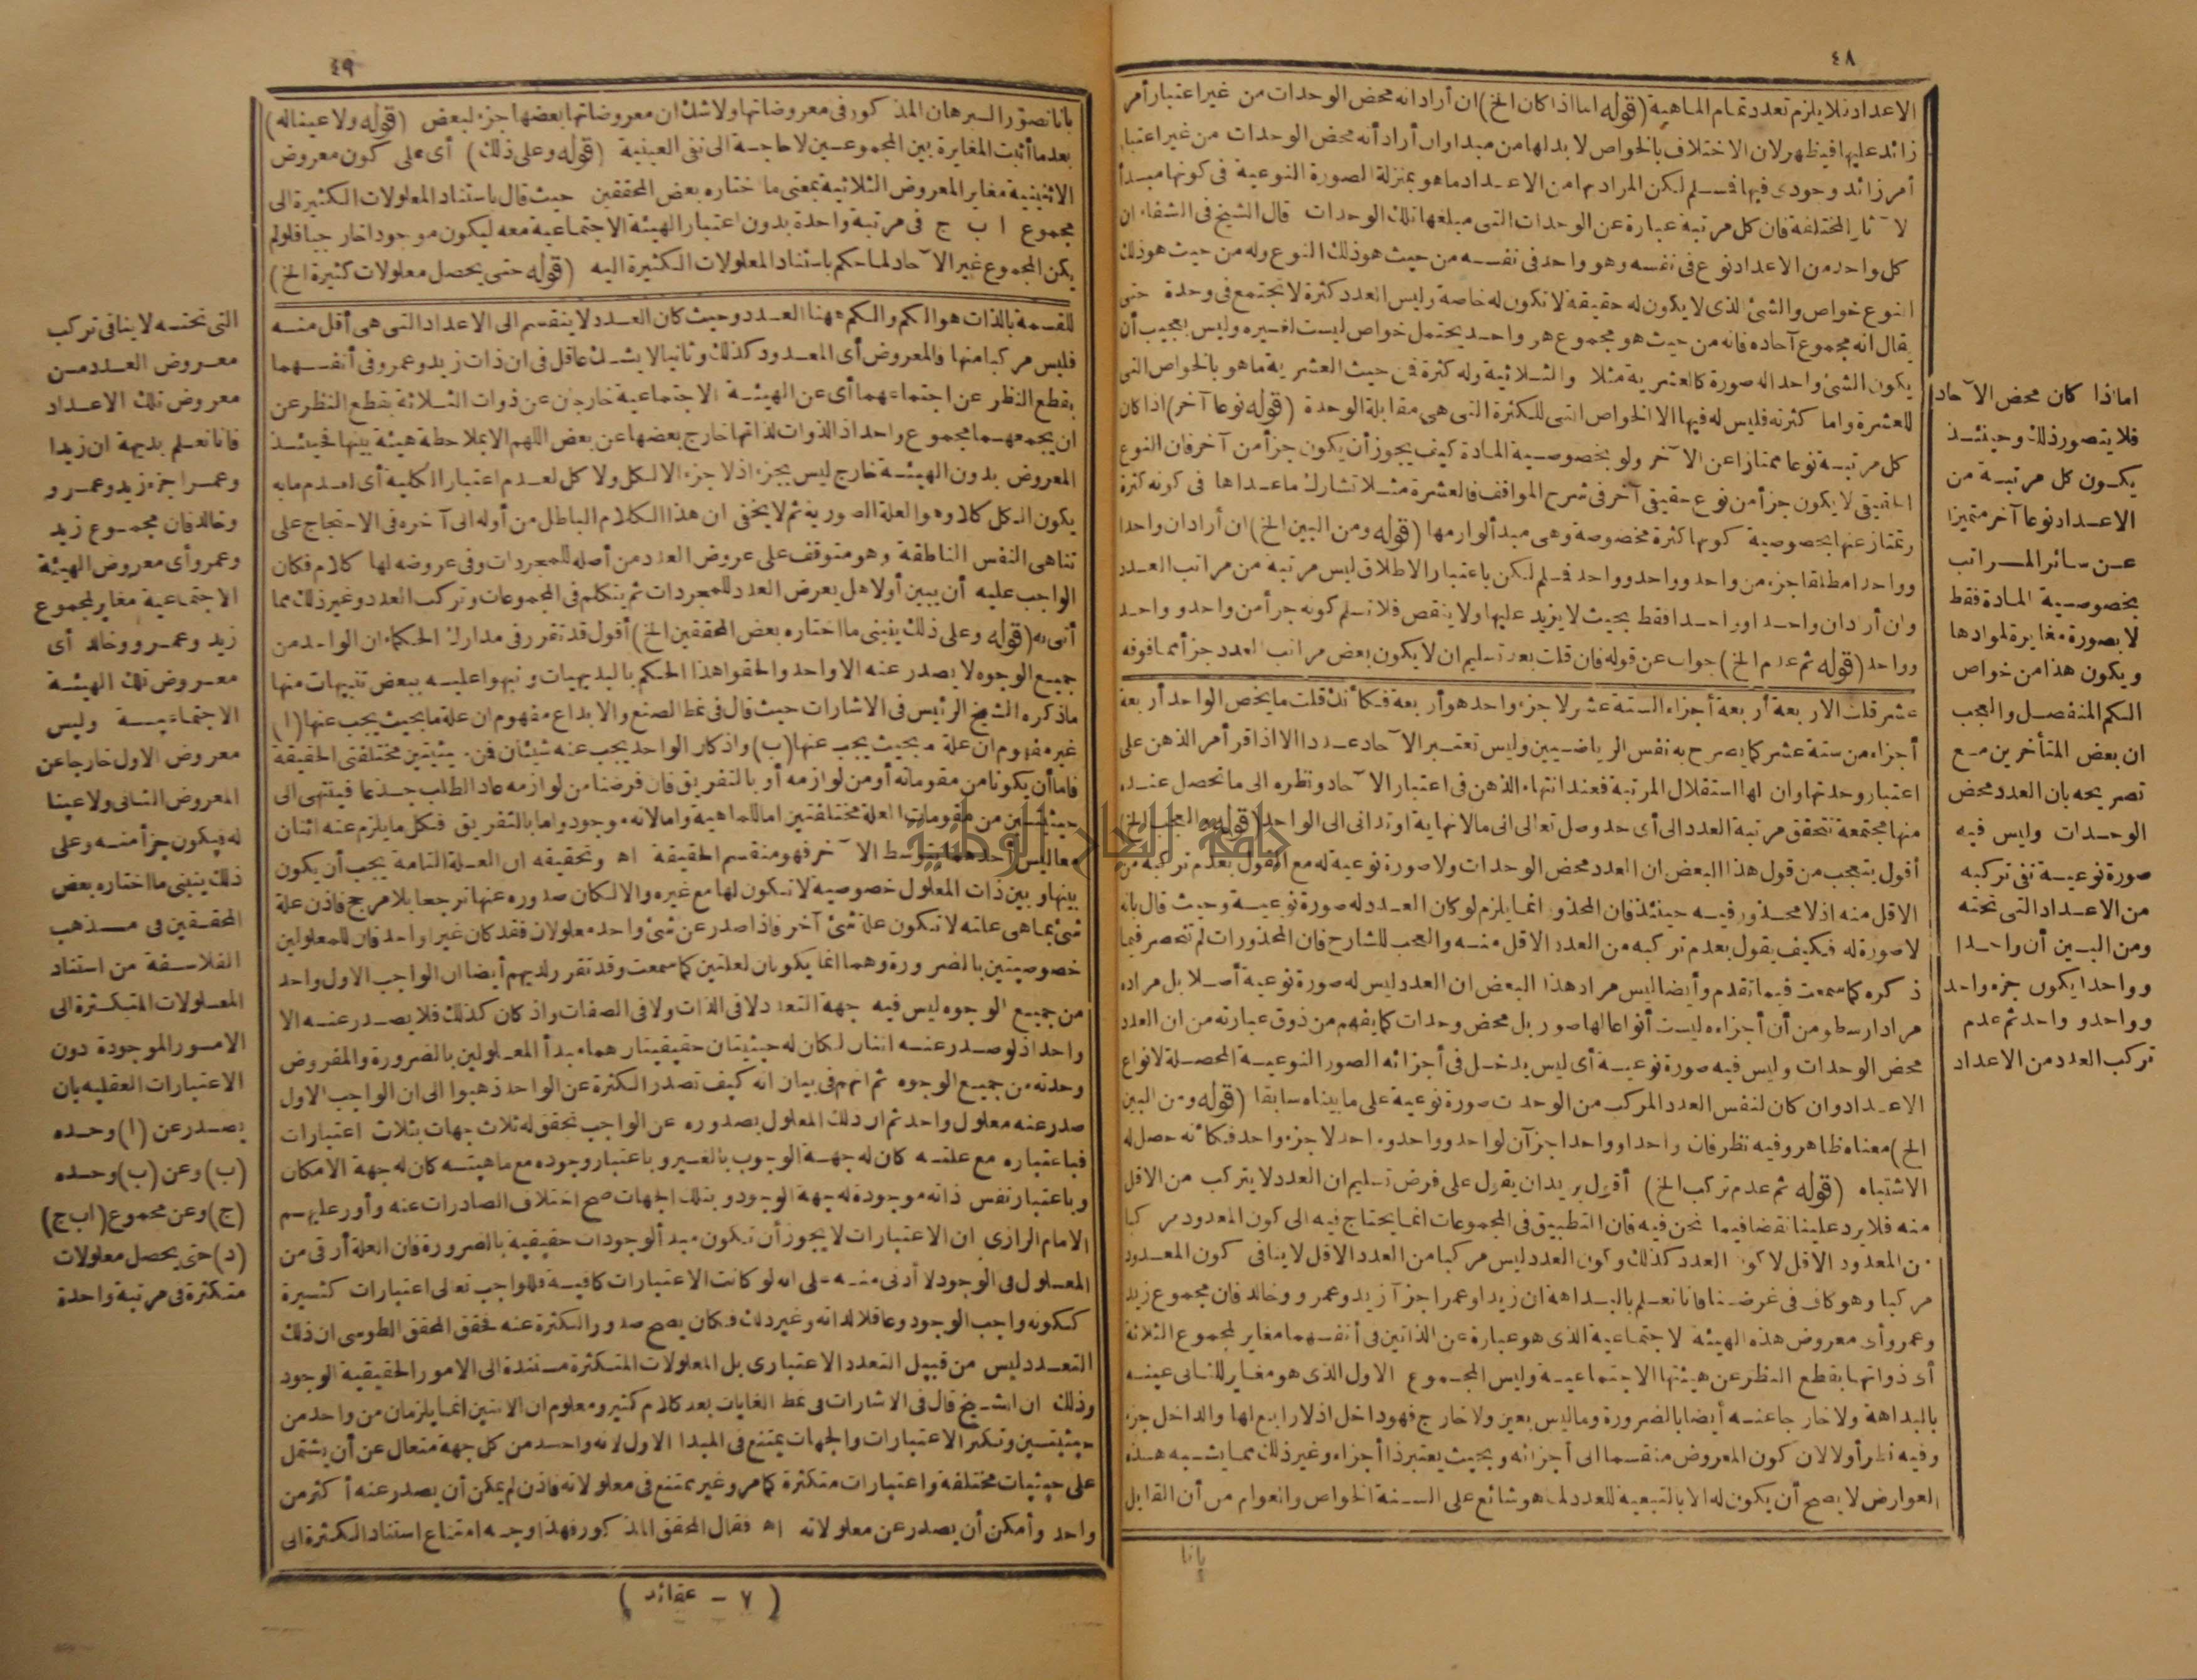 ٤٨
الاعداد فلا يلزم تعدد تمام الماهية (قوله اما اذا كان الخ) ان أراد انه محض الوحدات من غير اعتبار أمر
زائد عليها فيظهر لان الاختلاف بالخواص لا بد لها من مبدا وان أراد أنه محض الوحدات من غير اعتبار
أمر زائد وجودى فيها فسلم لكن المراد بها من الاعداد ما هو بمنزلة الصورة النوعية فى كونها مبدأ
لآثار المختلفة فان كل مرتبة عبارة عن الوحدات التى مبلغها تلك الوحدات قال الشيخ فى الشفاء ان
كل واحد من الاعداد نوع فى نفسه وهو واحد فى نفسه من حيث هو ذلك النوع وله من حيث هو ذلك
النوع خواص والشئ الذى لا يكون له حقيقة لا تكون له خاصة وليس العدد كثرة لا تجتمع فى وحدة حتى
يقال انه مجموع آحاده فانه من حيث هو مجموع هو واحد يحتمل خواص ليست لغيره وليس بعجيب أن
يكون الشئ واحدا له صورة كالعشرية مثلا والثلاثية وله كثرة فمن حيث العشرية ما هو بالخواص التى
للعشرة واما كثرته فليس له فيها الا الخواص التى للكثرة التى هى مقابلة الوحدة (قوله نوعا آخر) اذا كان
كل مرتبة نوعا ممتازا عن الآخر ولو بخصوصية المادة كيف يجوز أن يكون جزأ من آخر فان النوع
الحقيقى لا يكون جزأ من نوع حقيقى آخر فى شرح المواقف فالعشرة مثلا تشارك ما عداها فى كونه كثرة
وتمتاز عنها بخصوصية كونها كثرة مخصوصة وهى مبدأ لوازمها (قوله ومن البين الخ) ان أراد ان واحدا
وواحدا مطلقا جزء من واحد وواحد وواحد فسلم لكن باعتبار الاطلاق ليس مرتبة من مراتب العدد
وان أراد ان واحدا وواحدا فقط بحيث لا يزيد عليها ولا ينقص فلا نسلم كونه جزأ من واحد وواحد
وواحد (قوله ثم عدم الخ) جواب عن قوله فان قلت بعد تسليم ان لا يكون بعض مراتب العدد جزأ مما فوقه
عشر قلت الاربعة أربعة أجزاء الستة عشر لا جزء واحد هو أربعة فكأنك قلت ما يخص الواحد أربعة
أجزاء من ستة عشر كما يصرح به نفس الرياضيين وليس تعتبر الآحاد عددا الا اذا قرأ مر الذهن على
اعتبار وحدتها وان لها استقلال المرتبة فعند انتهاء الذهن فى اعتبار الآحاد ونظره الى ما تحصل عنده
منها مجتمعة تتحقق مرتبة العدد الى أى حد وصل تعالى الى ما لا نهاية او تدانى الى الواحد (قوله والعجب الخ)
أقول يتعجب من قول هذا البعض ان العدد محض الوحدات ولا صورة نوعية له مع القول بعدم تركبه من
الاقل منه اذ لا محذور فيه حينئذ فان المحذور انما يلزم لو كان العدد له صورة نوعية وحيث قال بانه
لا صورة له فكيف يقول بعدم تركبه من العدد الاقل منه والعجب للشارح فان المحذورات لم تنحصر فيما
ذكره كما سمعت فيما تقدم وأيضا ليس مراد هذا البعض ان العدد ليس له صورة نوعية أصلا بل مراده
مراد ارسطو من أن أجزاءه ليست أنواعا لها صور بل محض وحدات كما يفهم من ذوق عبارته من ان العدد
محض الوحدات وليس فيه صورة نوعية أى ليس يدخل فى أجزائه الصور النوعية المحصلة لانواع
الاعداد وان كان لنفس العدد المركب من الوحدات صورة نوعية على ما بيناه سابقا (قوله ومن البين
الخ) معناه ظاهر وفيه نظر فان واحدا وواحدا جزآن لواحد وواحد وواحد لا جزء واحد فكأنه حصل له
الاشتباه (قوله ثم عدم تركب الخ) أقول يريد ان يقول على فرض تسليم ان العدد لا يتركب من الاقل
منه فلا يرد علينا نقضا فيما نحن فيه فان التطبيق فى المجموعات انما يحتاج فيه الى كون المعدود مركبا
من المعدود الاقل لا كون العدد كذلك وكون العدد ليس مركبا من العدد الاقل لا ينافى كون المعدود
مركبا وهو كاف فى غرضنا فانا نعلم بالبداهة ان زيدا وعمرا جزآ زيد وعمرو وخالد فان مجموع زيد
وعمرو أى معروض هذه الهيئة الاجتماعية الذى هو عبارة عن الذاتين فى أنفسهما مغاير لمجموع الثلاثة
أى ذواتها بقطع النظر عن هيئتها الاجتماعية وليس المجموع الاول الذى هو مغاير للثانى عينه
بالبداهة ولا خارجا عنه أيضا بالضرورة وما ليس بعين ولا خارج فهو داخل اذ لا رابع لها والداخل جزء
وفيه نظر أولا لان كون المعروض منقسما الى أجزائه وبحيث يعتبر ذا أجزاء وغير ذلك مما يشبه هذه
العوارض لا يصح أن يكون له الا بالتبعية للعدد لما هو شائع على السنة الخواص والعوام من أن القابل
بانا
اما اذا كان محض الآحاد
فلا يتصور ذلك وحينئذ
يكون كل مرتبة من
الاعداد نوعا آخر متميزا
عن سائر المراتب
بخصوصية المادة فقط
لا بصورة مغايرة لموادها
ويكون هذا من خواص
الكم المنفصل والعجب
ان بعض المتأخرين مع
تصريحه بان العدد محض
الوحدات وليس فيه
صورة نوعية نفى تركبه
من الاعداد التى تحته
ومن البين أن واحدا
وواحدا يكون جزء واحد
وواحد وواحد ثم عدم
تركب العدد من الاعداد
٤٩
بانا نصوّر البرهان المذكور فى معروضاتها ولا شك ان معروضاتها بعضها جزء لبعض (قوله ولا عينا له)
بعد ما أثبت المغايرة بين المجموعين لا حاجة الى نفى العينية (قوله وعلى ذلك) أى على كون معروض
الاثنينية مغاير المعروض الثلاثية بمعنى ما ختاره بعض المحققين حيث قال باستناد المعلولات الكثيرة الى
مجموع ا ب ج فى مرتبة واحدة بدون اعتبار الهيئة الاجتماعية معه ليكون موجودا خارجيا فلو لم
يكن المجموع غير الآحاد لما حكم باستناد المعلولات الكثيرة اليه (قوله حتى يحصل معلولات كثيرة الخ)
للقسمة بالذات هو الكم والكم ههنا العدد وحيث كان العدد لا ينقسم الى الاعداد التى هى أقل منه
فليس مركبا منها والمعروض أى المعدود كذلك وثانيا لا يشك عاقل فى ان ذات زيد وعمرو فى أنفسهما
بقطع النظر عن اجتماعهما أى عن الهيئة الاجتماعية خارجان عن ذوات الثلاثة بقطع النظر عن
ان يجمعهما مجموع واحد اذ الذوات لذاتها خارج بعضها عن بعض اللهم الا بملاحظة هيئة بينها فحينئذ
المعروض بدون الهيئة خارج ليس بجزء اذ لا جزء الا لكل ولا كل لعدم اعتبار الكلية أى لعدم ما به
يكون الكل كلا وهو العلة الصورية ثم لا يخفى ان هذا الكلام الباطل من أوله الى آخره فى الاحتجاج على
تناهى النفس الناطقة وهو متوقف على عروض العدد من أصله للمجردات وفى عروضه لها كلام فكان
الواجب عليه أن يبين أولا هل يعرض العدد للمجردات ثم يتكلم فى المجموعات وتركب العدد وغير ذلك مما
أتى به (قوله وعلى ذلك يبتنى ما اختاره بعض المحققين الخ) أقول قد تقرر فى مدارك الحكماء ان الواحد من
جميع الوجوه لا يصدر عنه الا واحد والحقوا هذا الحكم بالبديهيات ونبهوا عليه ببعض تنبيهات منها
ما ذكره الشيخ الرئيس فى الاشارات حيث قال فى نمط الصنع والابداع مفهوم ان علة ما بحيث يجب عنها (ا)
غير مفهوم ان علة ما بحيث يجب عنها (ب) واذ كان الواحد يجب عنه شيئان فمن حيثيتين مختلفتى الحقيقة
فاما أن يكونا من مقوماته أو من لوازمه أو بالتفريق فان فرضنا من لوازمه عاد الطلب جذعا فينتهى الى
حيثيتين من مقومات العلة مختلفتين اما للماهية واما لانه موجود واما بالتفريق فكل ما يلزم عنه اثنان
معا ليس أحدهما بتوسط الآخر فهو منقسم الحقيقة اه وتحقيقه ان العلة التامة يجب أن يكون
بينها وبين ذات المعلول خصوصية لا تكون لها مع غيره والا لكان صدوره عنها ترجيحا بلا مرجح فاذن علة
شئ بما هى علته لا تكون علة شئ آخر فاذا صدر عن شئ واحد معلولان فقد كان غير واحد فان للمعلولين
خصوصيتين بالضرورة وهما انما يكونان لعلتين كما سمعت وقد تقرر لديهم أيضا ان الواجب الاول واحد
من جميع الوجوه ليس فيه جهة التعدد لا فى الذات ولا فى الصفات واذ كان كذلك فلا يصدر عنه الا
واحد اذ لو صدر عنه اثنان لكان له حيثيتان حقيقيتان هما مبدأ المعلولين بالضرورة والمفروض
وحدته من جميع الوجوه ثم انهم فى بيان انه كيف تصدر الكثرة عن الواحد ذهبوا الى ان الواجب الاول
صدر عنه معلول واحد ثم ان ذلك المعلول بصدوره عن الواجب تحقق له ثلاث جهات بثلاث اعتبارات
فباعتباره مع علته كان له جهة الوجوب بالغير وباعتبار وجوده مع ماهيته كان له جهة الامكان
وباعتبار نفس ذاته موجودة له جهة الوجود وبتلك الجهات صح اختلاف الصادرات عنه وأورد عليهم
الامام الرازى ان الاعتبارات لا يجوز أن تكون مبدأ لوجودات حقيقية بالضرورة فان العلة أرقى من
المعلول فى الوجود لا أدنى منه على انه لو كانت الاعتبارات كافية فللواجب تعالى اعتبارات كثيرة
ككونه واجب الوجود وعاقلا لذاته وغير ذلك فكان يصح صدور الكثرة عنه فحقق المحقق الطوسى ان ذلك
التعدد ليس من قبيل التعدد الاعتبارى بل المعلولات المتكثرة مستندة الى الامور الحقيقية الوجود
وذلك ان الشيخ قال فى الاشارات فى نمط الغايات بعد كلام كثير ومعلوم ان الاثنين انما يلزمان من واحد من
حيثيتين وتكثر الاعتبارات والجهات يمتنع فى المبدا الاول لانه واحد من كل جهة متعال عن أن يشتمل
على حيثيات مختلفة واعتبارات متكثرة كما مر وغير ممتنع فى معلولاته فاذن لم يمكن أن يصدر عنه أكثر من
واحد وأمكن أن يصدر عن معلولاته اه فقال المحقق المذكور فهذا وجه امتناع استناد الكثرة الى
(٧ - عقائد)
التى تحته لا ينافى تركب
معروض العدد من
معروض تلك الاعداد
فانا نعلم بديهة ان زيدا
وعمرا جزء زيد وعمرو
وخالد فان مجموع زيد
وعمرو أى معروض الهيئة
الاجتماعية مغاير لمجموع
زيد وعمرو وخالد أى
معروض تلك الهيئة
الاجتماعية وليس
معروض الاول خارجا عن
المعروض الثانى ولا عينا
له فيكون جزأ منه وعلى
ذلك يبتنى ما اختاره بعض
المحققين فى مذهب
الفلاسفة من استناد
المعلولات المتكثرة الى
الامور الموجودة دون
الاعتبارات العقلية بان
يصدر عن (ا) وحده
(ب) وعن (ب) وحده
(ج) وعن مجموع (اب ج)
(د) حتى يحصل معلولات
متكثرة فى مرتبة واحدة
جامعة النجاح الوطنية